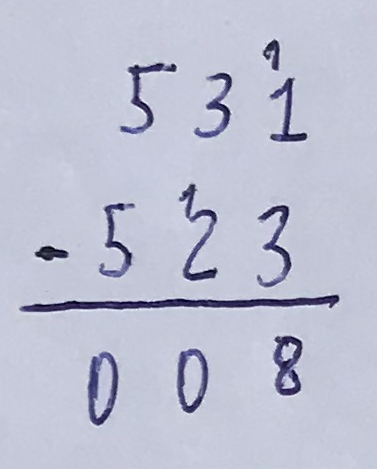 1
5 3 1
1
- 5 2 3
0 0 8